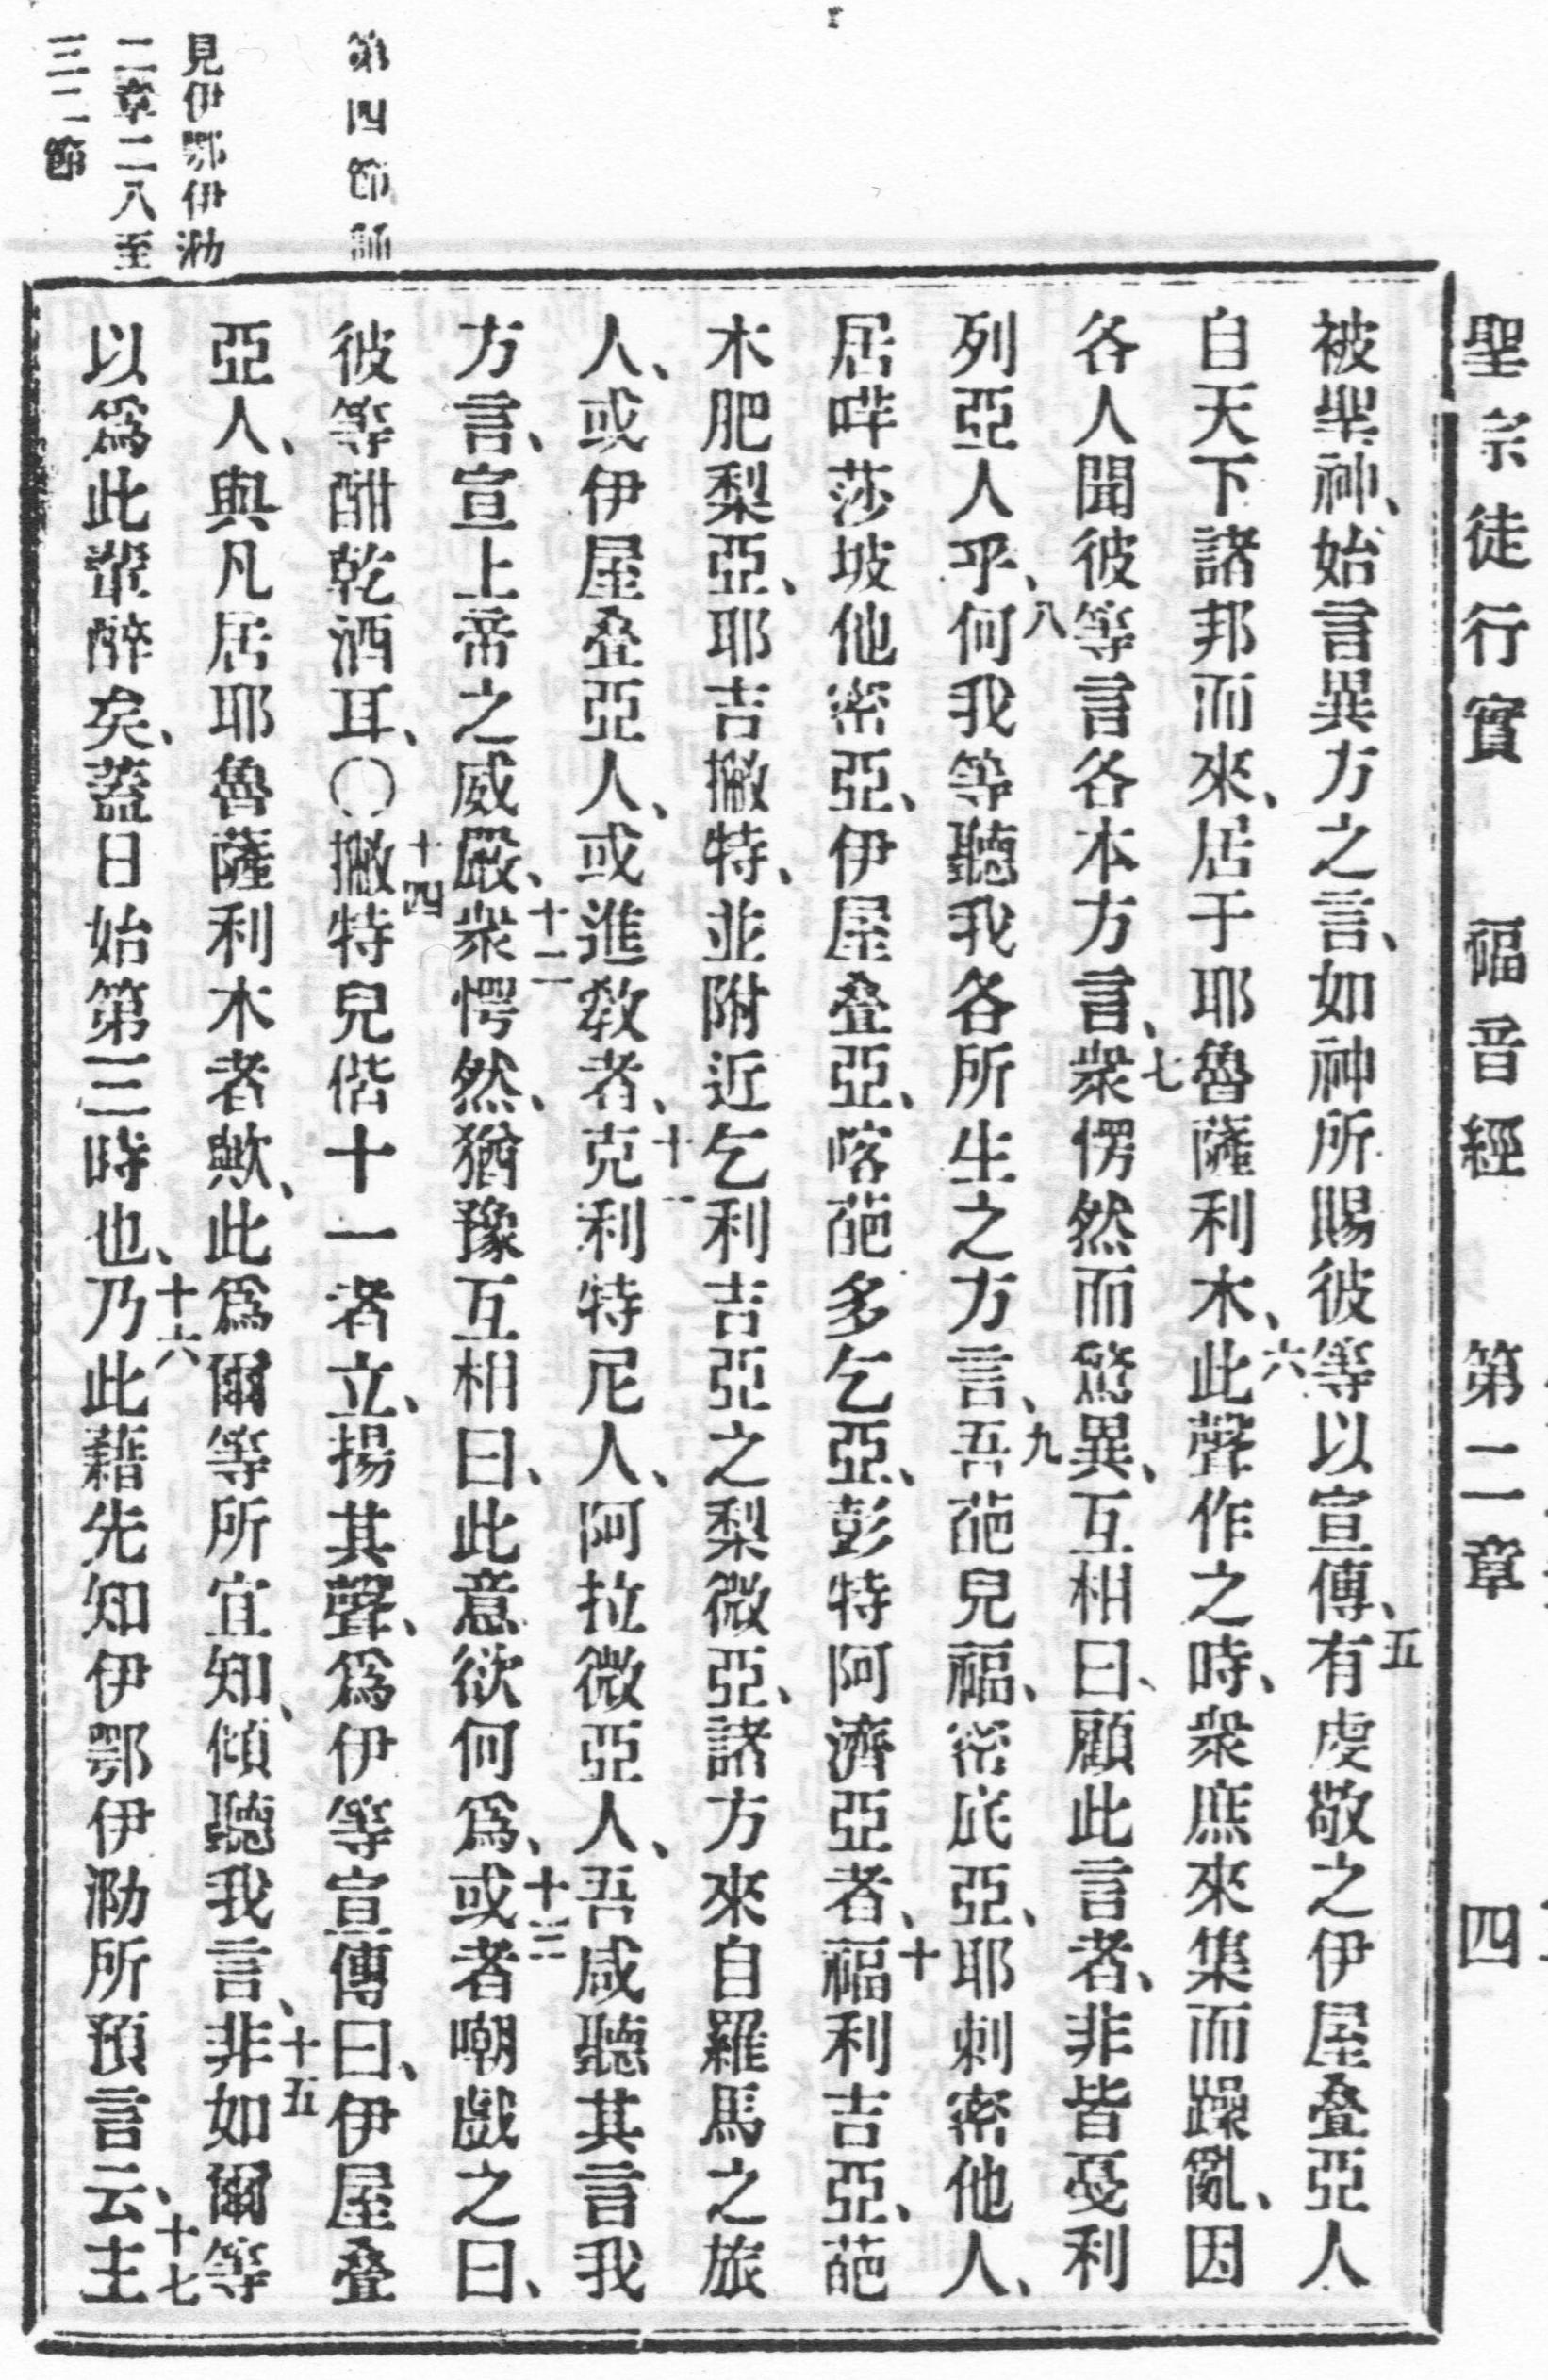 聖宗徒行實　福音經　第二章　四
被聖神、始言異方之言、如神所賜彼等以宣傳、五有虔敬之伊屋叠亞人
自天下諸邦而來、居于耶魯薩利木、六此聲作之時、衆庶來集而躁亂、因
各人聞彼等言各本方言、七衆愕然而驚異、互相曰、顧此言者、非皆戞利
列亞人乎、八何我等聽我各所生之方言、九吾葩兒福、密底亞、耶剌密他人、
居哶莎坡他密亞、伊屋叠亞、喀葩多乞亞、彭特阿濟亞者、十福利吉亞、葩
木肥梨亞、耶吉撇特、並附近乞利吉亞之梨微亞、諸方來自羅馬之旅
人、或伊屋叠亞人、或進教者、十一克利特尼人、阿拉微亞人、吾咸聽其言我
方言、宣上帝之威嚴、十二衆愕然、猶豫互相曰、此意欲何爲、十三或者嘲戲之曰、
彼等酣乾酒耳、〇十四撇特兒偕十一者立、揚其聲、爲伊等宣傳曰、伊屋叠
亞人、與凡居耶魯薩利木者歟、此爲爾等所宜知、傾聽我言、十五非如爾等
以爲此輩醉矣、蓋日始第三時也、十六乃此藉先知伊鄂伊泐所預言云、十七主
第四節
見伊鄂伊泐
二章二八至
三二節